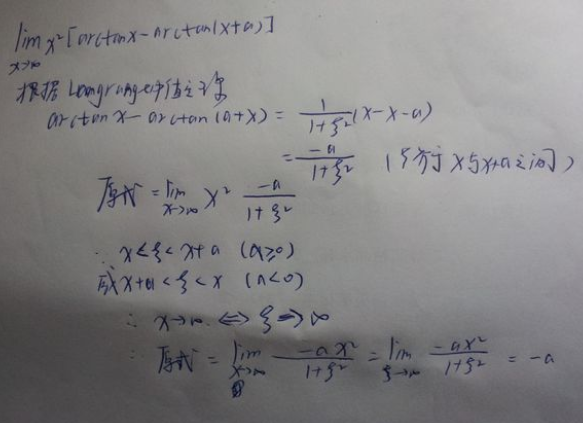 lim x→∞ x² [arctanx - arctan(x+a)]
根据 Langrange中值定理
arctan x - arctan (a+x) = 1/(1+ξ²) (x-x-a)
= -a/(1+ξ²) (ξ介于 x与x+a之间)
原式 = lim x→∞ x² -a/(1+ξ²)
∵ x≤ξ<x+a (a≥0)
或 x+a<ξ<x (a<0)
∴ x→∞ ⇔ ξ→∞
∴ 原式 = lim x→∞ -ax²/(1+ξ²) = lim ξ→∞ -ax²/(1+ξ²) = -a